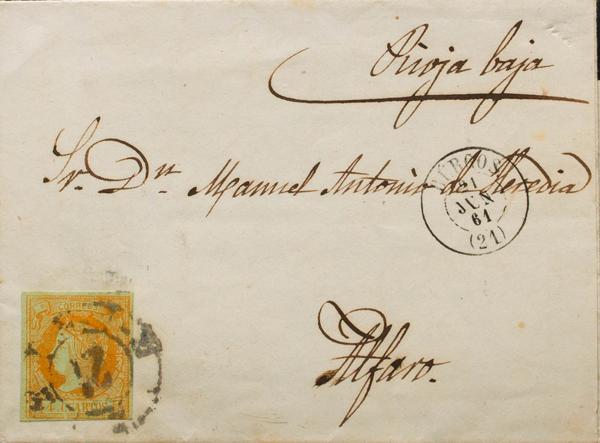 Rioja baja
Sr. Dn. Manuel Antonio de Heredia
BÚRGOS
21
JUN
61
(21)
Alfaro.
CORREOS
CUARTOS